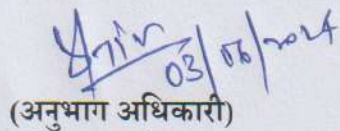 03/06/2024
(अनुभाग अधिकारी)